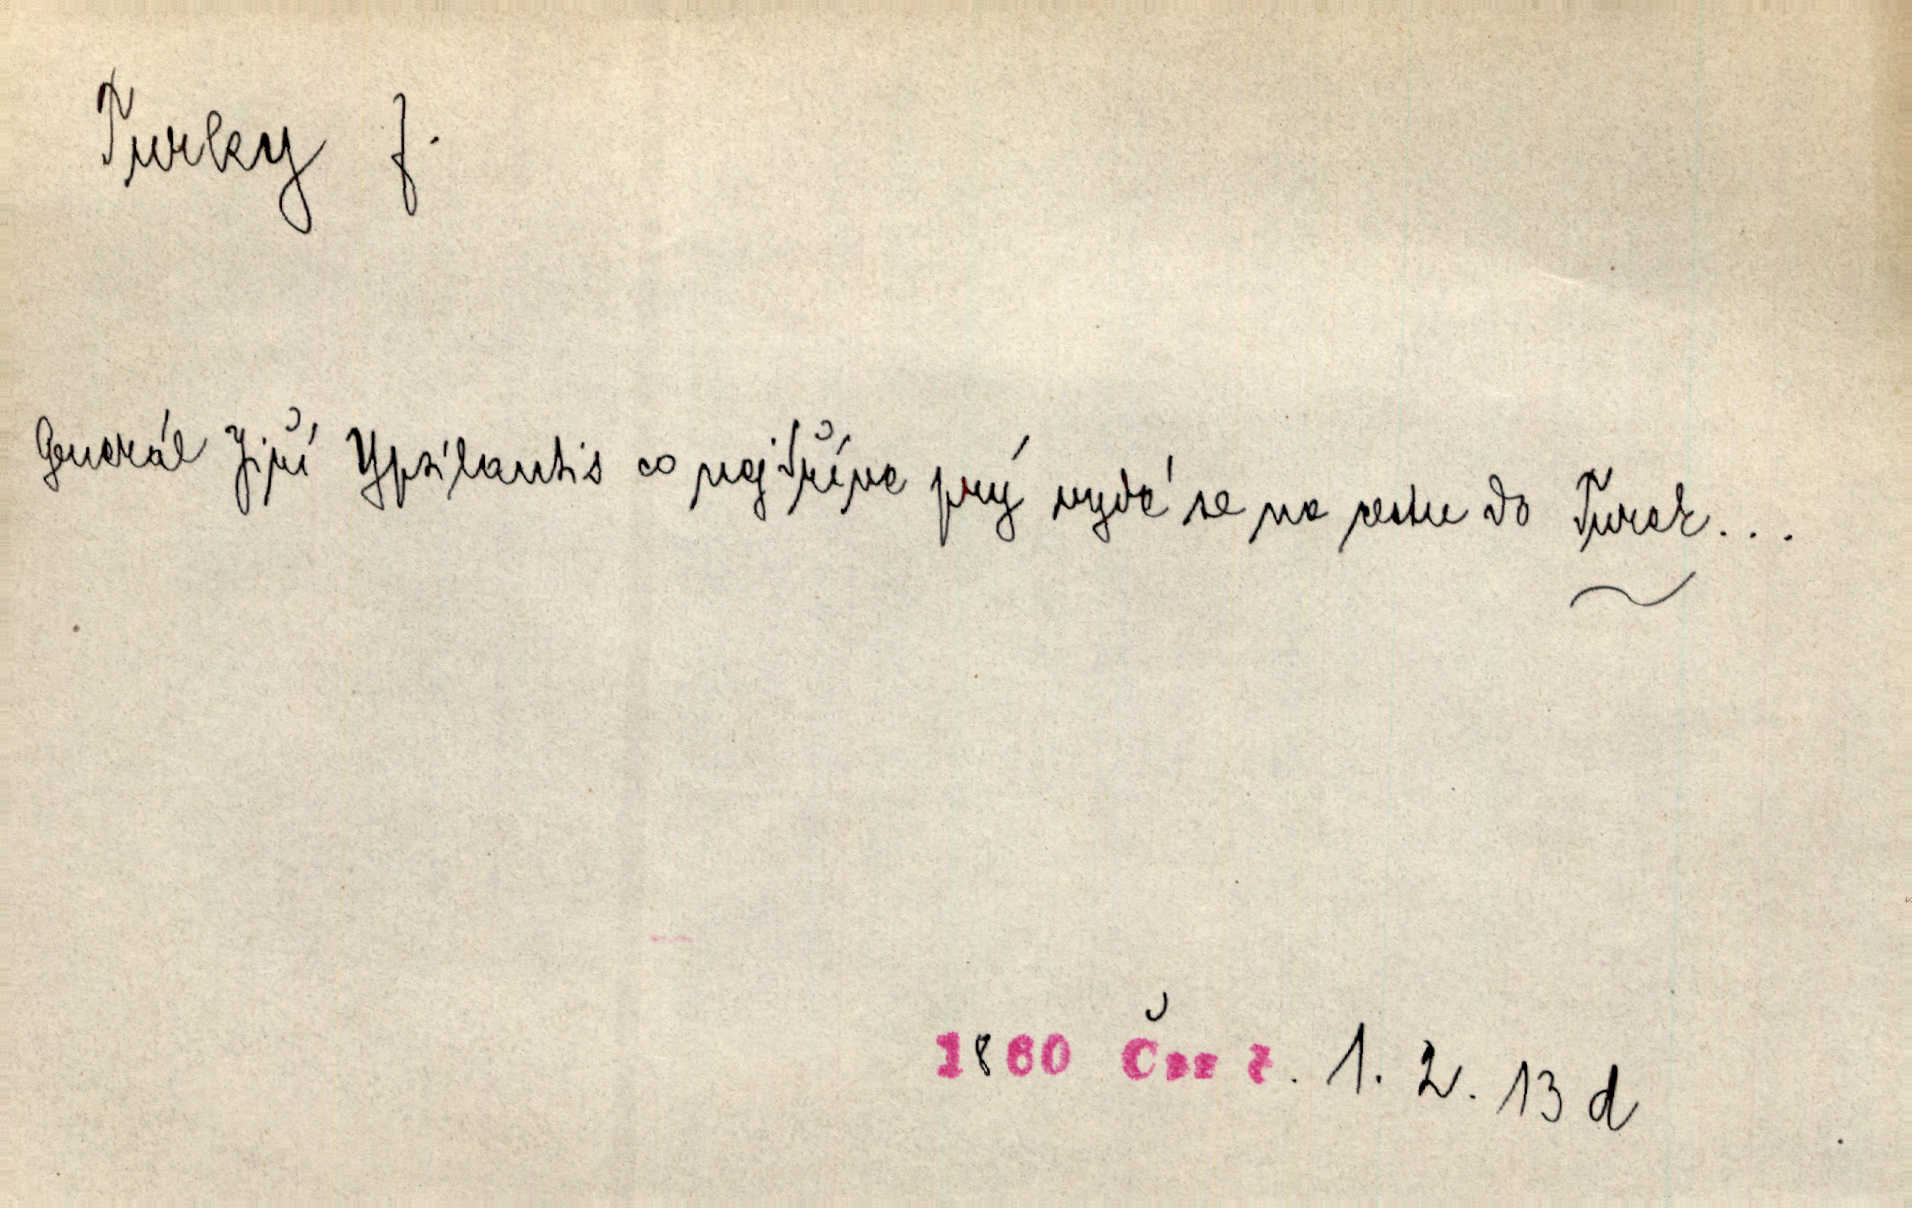 Turky f.
Generál Jiří Ypsilantis co nejdříve prý vydá se na cestu do Turek...
1860 Čas 1. 2. 13 d